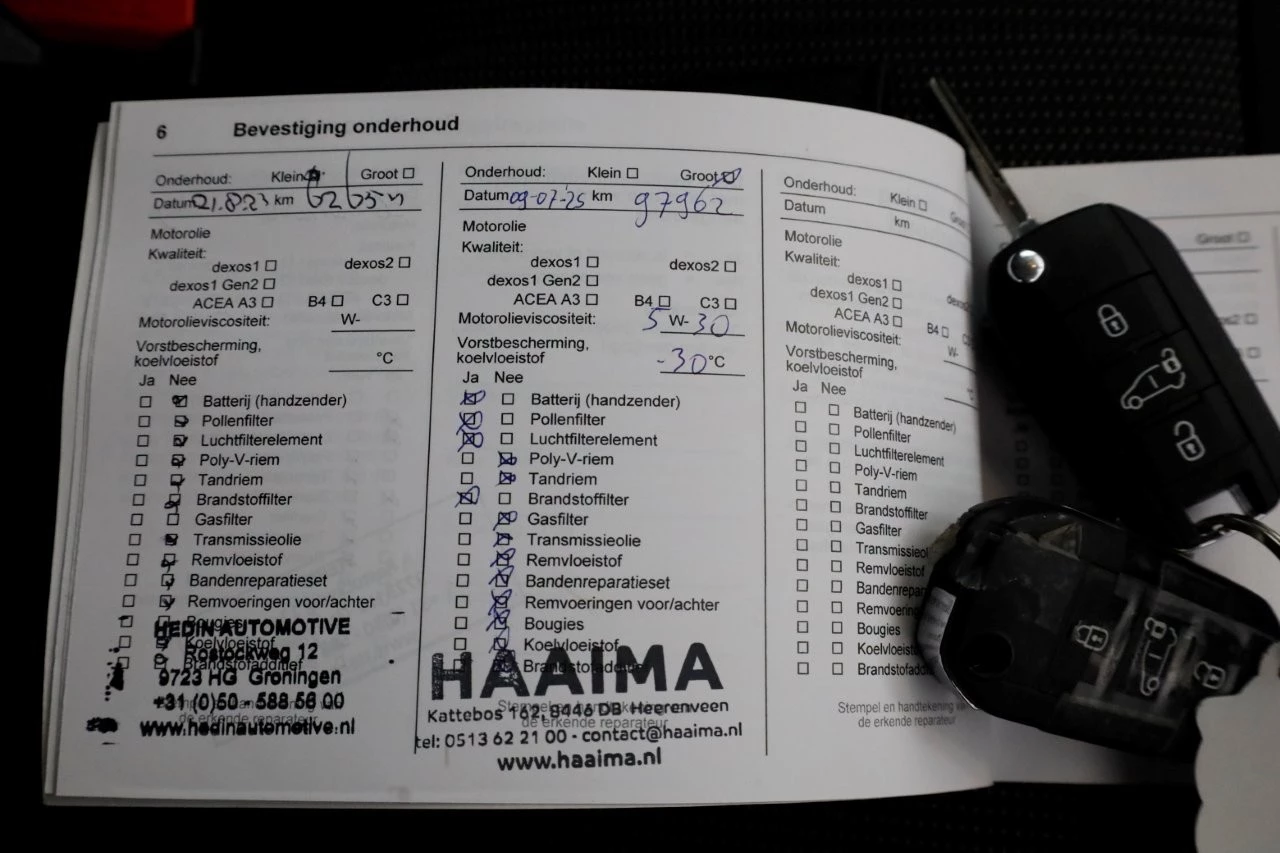 6 Bevestiging onderhoud
Onderhoud: Klein Groot
Datum 21.8.23 km
Motorolie
Kwaliteit:
dexos1 dexos2
dexos1 Gen2
ACEA A3 B4 C3
Motorolieviscositeit: W-
Vorstbescherming,
koelvloeistof °C
Ja Nee
Batterij (handzender)
Pollenfilter
Luchtfilterelement
Poly-V-riem
Tandriem
Brandstoffilter
Gasfilter
Transmissieolie
Remvloeistof
Bandenreparatieset
Remvoeringen voor/achter
Bougies
Koelvloeistof
Brandstofadditief
HEDIN AUTOMOTIVE
Rostockweg 12
9723 HG Groningen
+31 (0)50 - 588 56 00
de erkende reparateur
www.hedinautomotive.nl
Onderhoud: Klein Groot
Datum 09-07-25 km 97962
Motorolie
Kwaliteit:
dexos1 dexos2
dexos1 Gen2
ACEA A3 B4 C3
Motorolieviscositeit: 5 W-30
Vorstbescherming,
koelvloeistof -30 °C
Ja Nee
Batterij (handzender)
Pollenfilter
Luchtfilterelement
Poly-V-riem
Tandriem
Brandstoffilter
Gasfilter
Transmissieolie
Remvloeistof
Bandenreparatieset
Remvoeringen voor/achter
Bougies
Koelvloeistof
Brandstofadditief
HAAIMA
Kattebos 162, 8446 DB Heerenveen
Stempel en handtekening van
de erkende reparateur
tel: 0513 62 21 00 - contact@haaima.nl
www.haaima.nl
Onderhoud: Klein Groot
Datum km
Motorolie
Kwaliteit:
dexos1 dexos
dexos1 Gen2
ACEA A3 B4
Motorolieviscositeit: W-
Vorstbescherming,
koelvloeistof
Ja Nee
Batterij (handzender)
Pollenfilter
Luchtfilterelement
Poly-V-riem
Tandriem
Brandstoffilter
Gasfilter
Transmissieol
Remvloeistof
Bandenrepar
Remvoering
Bougies
Koelvloeis
Brandstofaddi
Stempel en handtekening va
de erkende reparateur
Groot